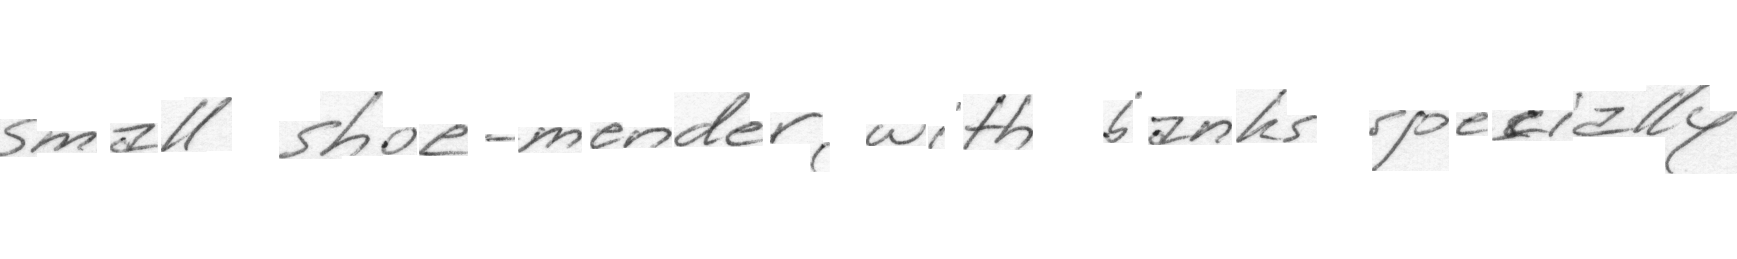 small shoe-mender, with banks specially